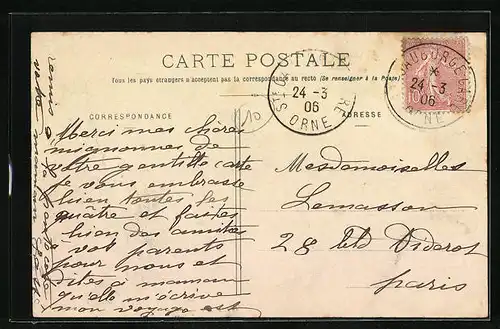 CARTE POSTALE
Tous les pays étrangers n'acceptent pas la correspondance au recto (Se renseigner à la Poste)
CORRESPONDANCE
ADRESSE
24 -3
06
ORNE
24 -3
06
ORNE
10
10
Merci mes chères
mignonnes de
votre gentille carte
je vous embrasse
bien toutes les
quatre et faites
bien des amitiés
vos parents
pour nous et
dites à maman
qu'elle m'écrive
mon voyage est
Mesdemoiselles
Lemasson
28 Bld Diderot
Paris